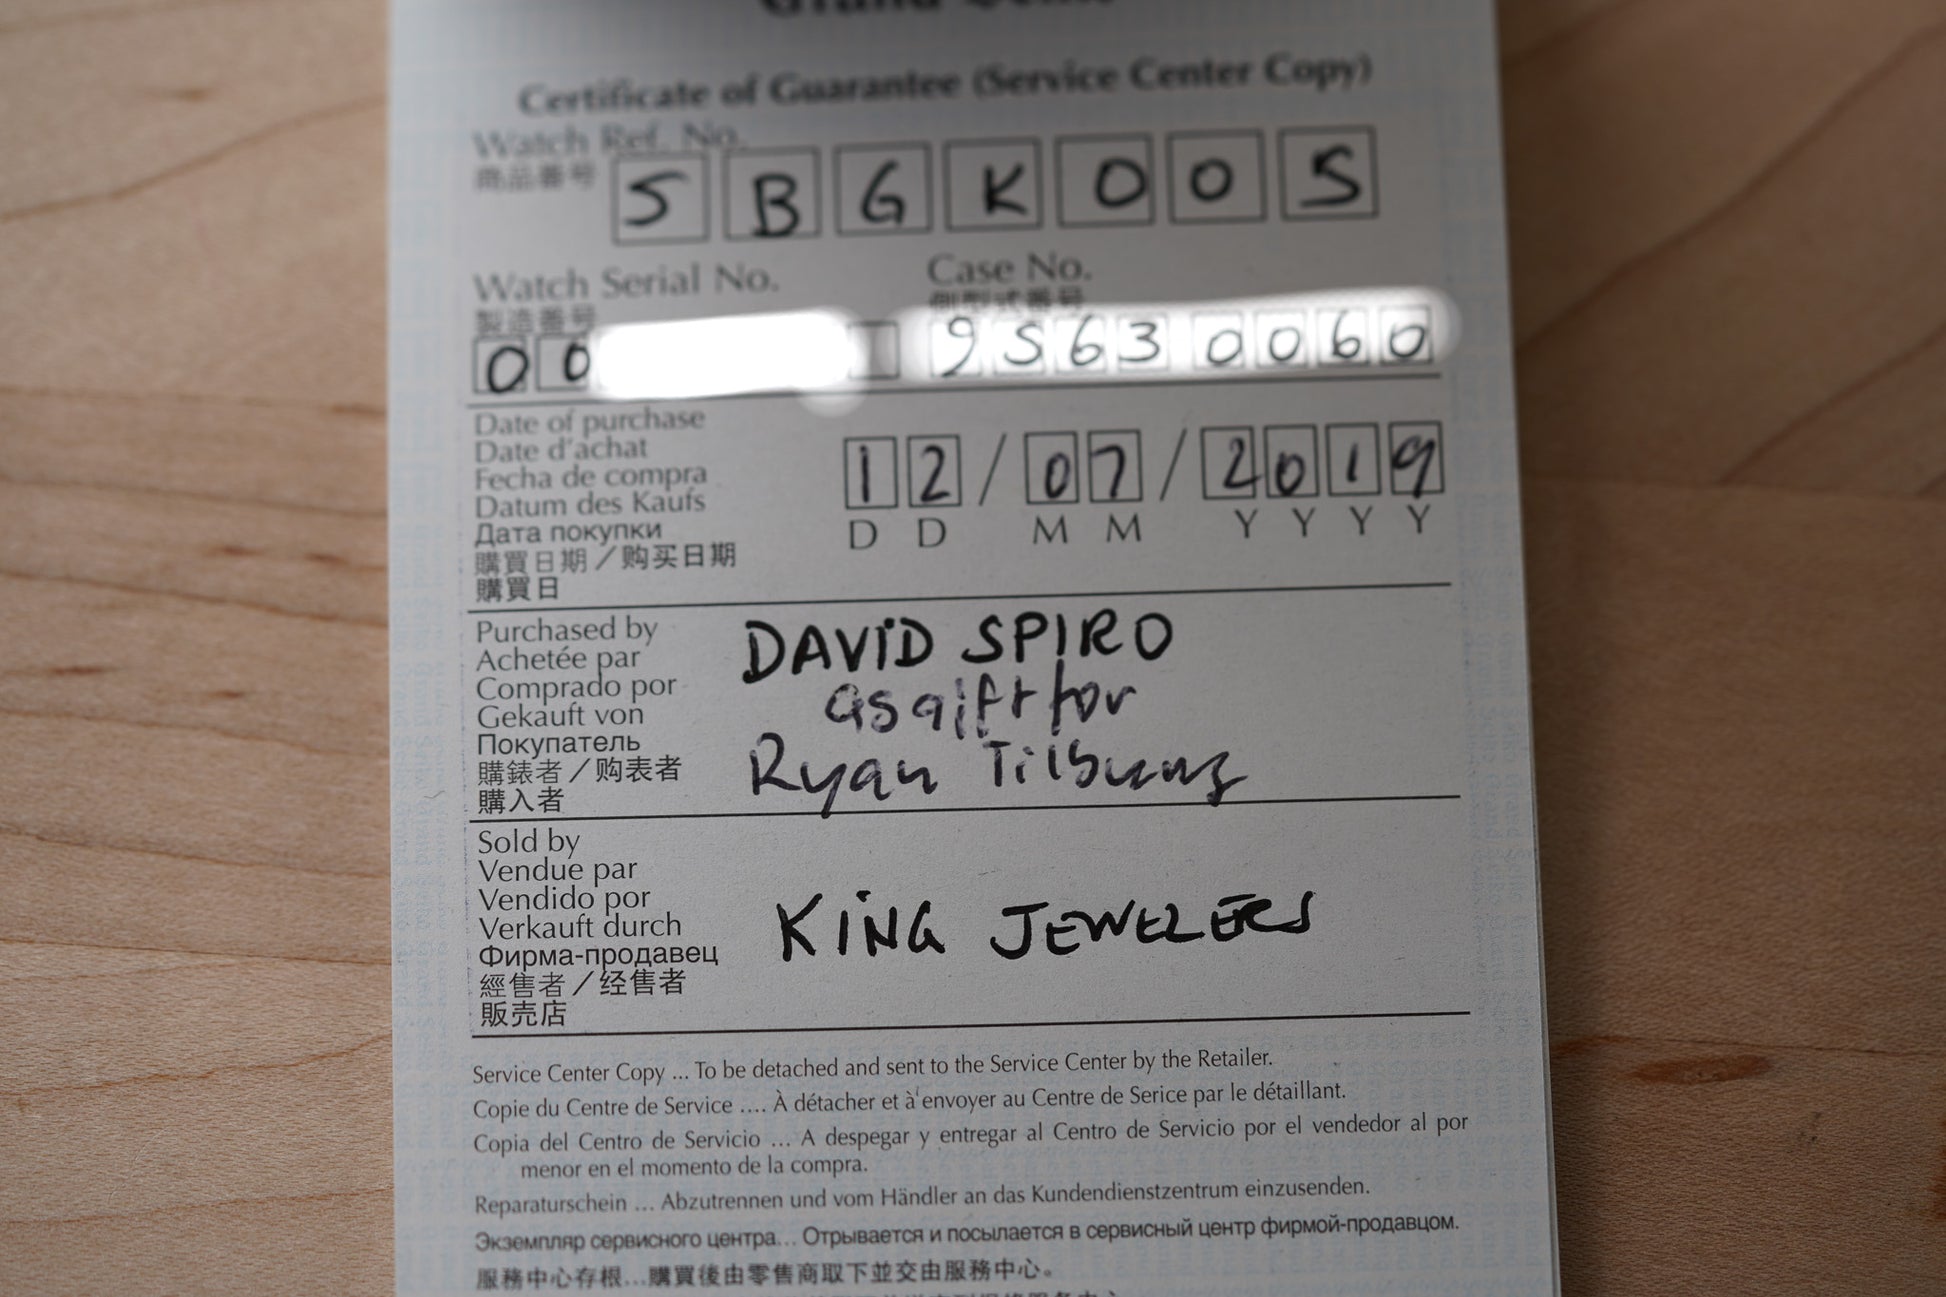 Grand Seiko
Certificate of Guarantee (Service Center Copy)
Watch Ref. No.
商品番号
SBGK005
Watch Serial No.
製造番号
00
Case No.
側型式番号
9S630060
Date of purchase
Date d'achat
Fecha de compra
Datum des Kaufs
Дата покупки
購買日期／购买日期
購買日
12/07/2019
D D M M Y Y Y Y
Purchased by
Achetée par
Comprado por
Gekauft von
Покупатель
購錶者／购表者
購入者
DAVID SPIRO
as gift for
Ryan Tilbury
Sold by
Vendue par
Vendido por
Verkauft durch
Фирма-продавец
經售者／经售者
販売店
KING JEWELERS
Service Center Copy ... To be detached and sent to the Service Center by the Retailer.
Copie du Centre de Service .... À détacher et à envoyer au Centre de Serice par le détaillant.
Copia del Centro de Servicio ... A despegar y entregar al Centro de Servicio por el vendedor al por
menor en el momento de la compra.
Reparaturschein ... Abzutrennen und vom Händler an das Kundendienstzentrum einzusenden.
Экземпляр сервисного центра... Отрывается и посылается в сервисный центр фирмой-продавцом.
服務中心存根...購買後由零售商取下並交由服務中心。